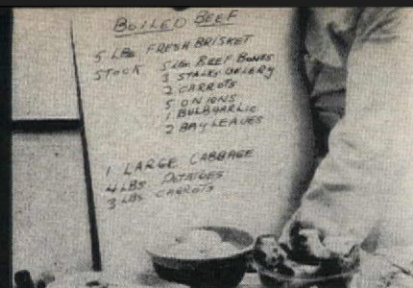 BOILED BEEF
5 LBS FRESH BRISKET
STOCK 5 LBS BEEF BONES
3 STALKS CELERY
2 CARROTS
5 ONIONS
1 BULB GARLIC
2 BAY LEAVES
1 LARGE CABBAGE
4 LBS POTATOES
3 LBS CARROTS